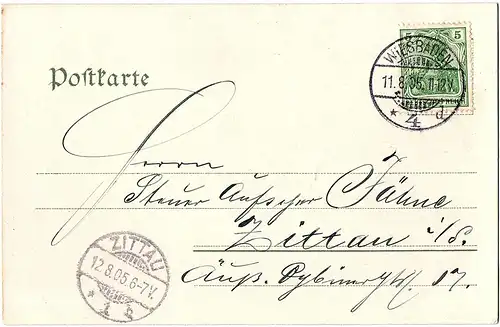 5 5
WIESBADEN
11.8.05. 11-12V.
* 4 d
Postkarte
Herrn
Steuer Aufseher Jähne
Zittau i/S.
Äuß. Oybinerstr. 17.
ZITTAU
12.8.05. 6-7V.
* 1 b